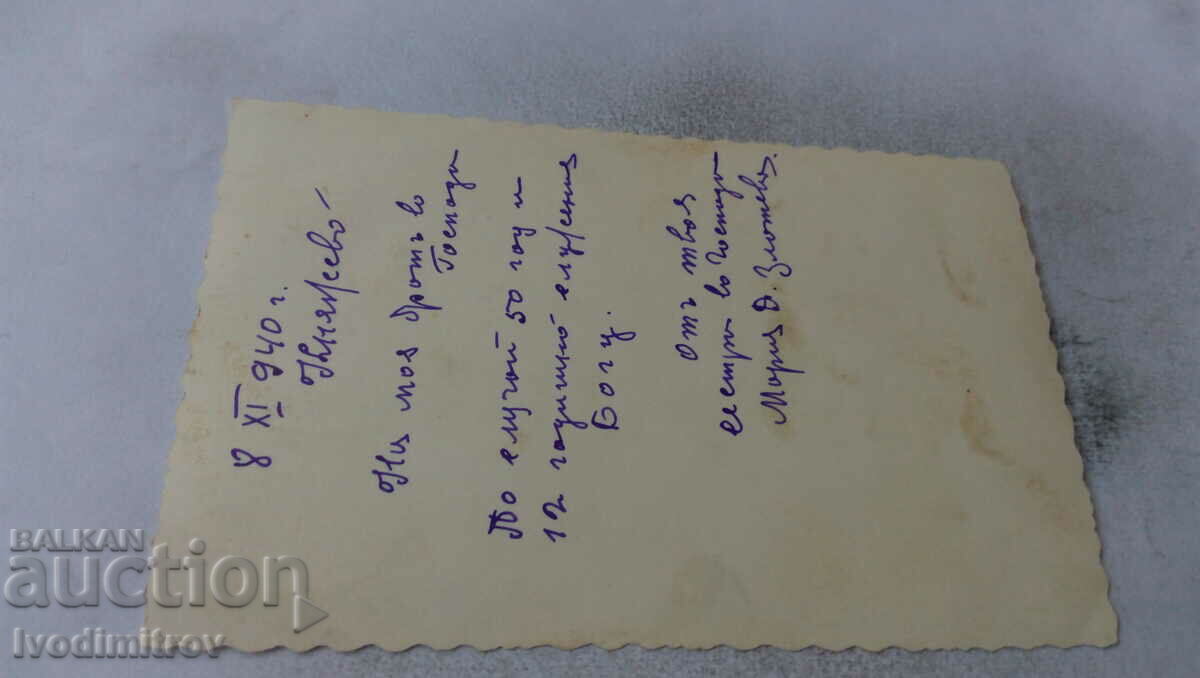 8 XI 940 г.
Княжево –
На моя братъ во
Господа
По случай 50 год и
12 годишно служение
Богу.
отъ твоя
сестра во Господа
Мария Д.
BALKAN
auction
Ivodimitrov